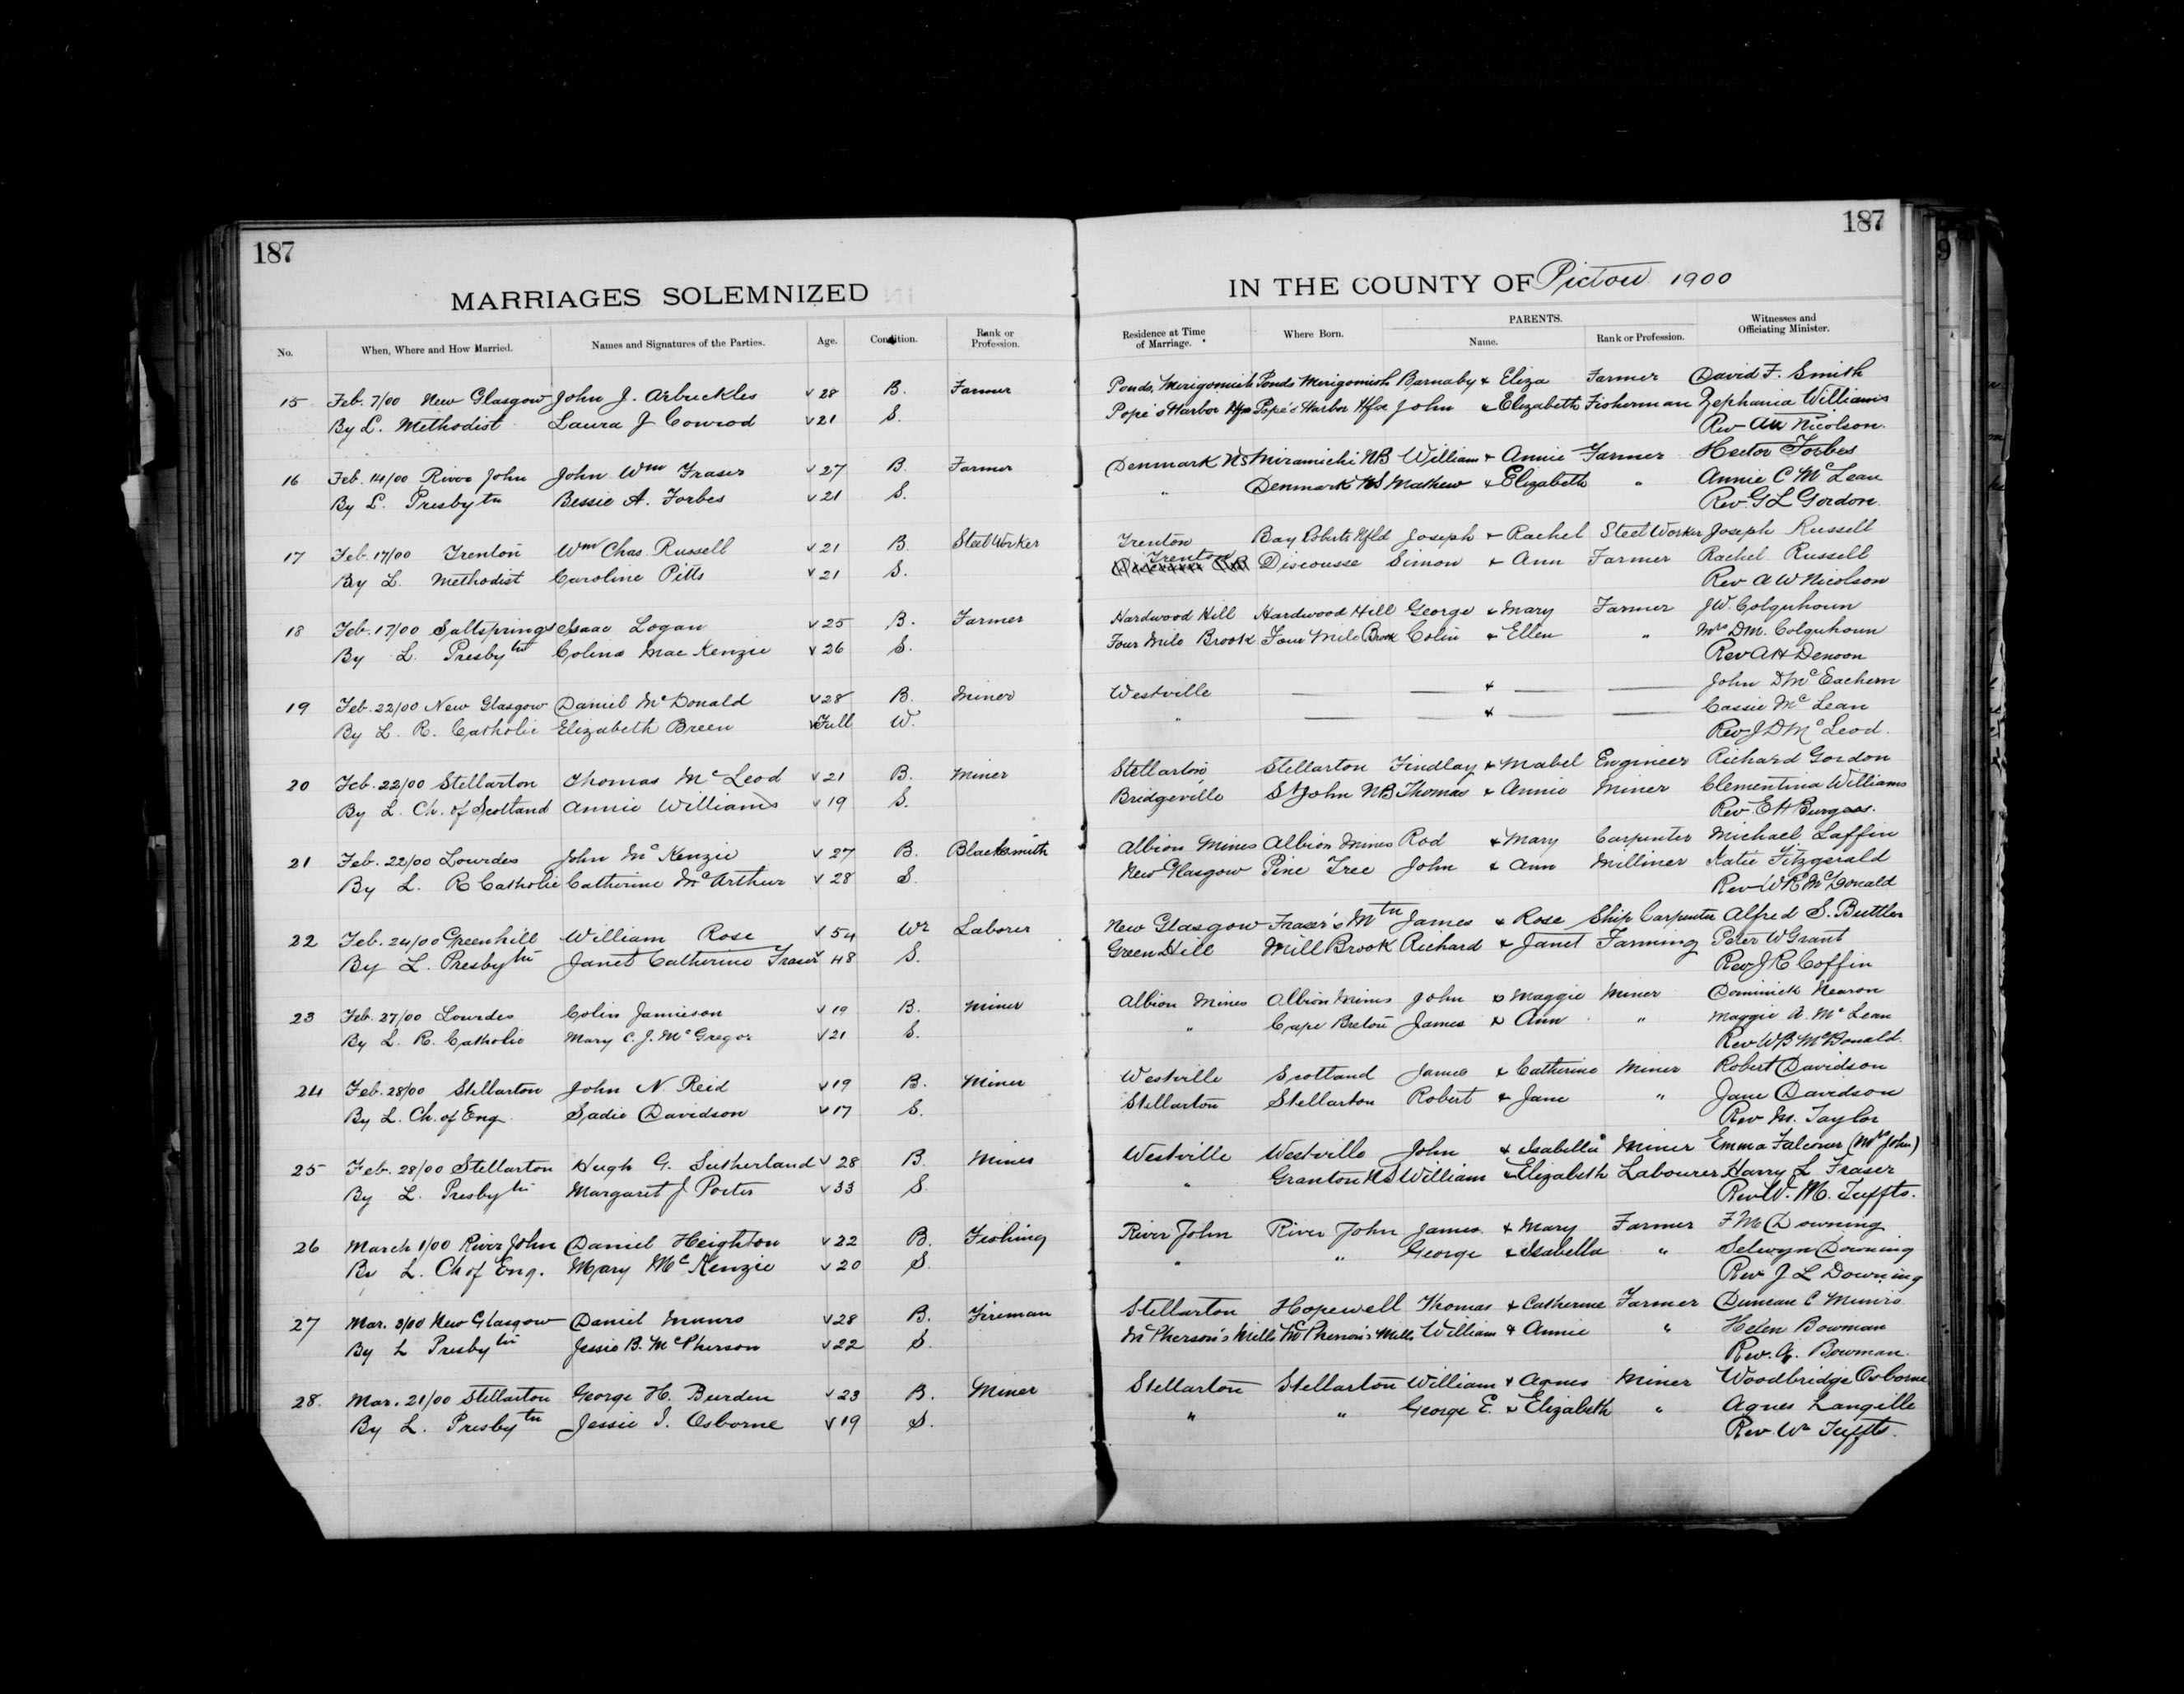 187
187
MARRIAGES SOLEMNIZED IN THE COUNTY OF Pictou 1900
No. When, Where and How Married. Names and Signatures of the Parties. Age. Condition. Rank or Profession. Residence at Time of Marriage. Where Born. PARENTS. Name. Rank or Profession. Witnesses and Officiating Minister.
15 Feb. 7/00 New Glasgow John J. Arbuckles 28 B. Farmer Ponds, Merigomish Ponds Merigomish Barnaby & Eliza Farmer David F. Smith
By L. Methodist Laura J Conrod 21 S. Pope's Harbor Hfx Pope's Harbor Hfx John & Elizabeth Fisherman Zephania Williams
Rev AW Nicolson.
16 Feb. 14/00 River John John Wm Fraser 27 B. Farmer Denmark NS Miramichi NB William & Annie Farmer Hector Forbes
By L. Presbytn Bessie A. Forbes 21 S. " Denmark NS Mathew & Elizabeth " Annie C McLean
Rev. G L Gordon.
17 Feb. 17/00 Trenton Wm Chas. Russell 21 B. Steel Worker Trenton Bay Roberts Nfld Joseph & Rachel Steel Worker Joseph Russell
By L. Methodist Caroline Pitts 21 S. Trenton Discousse Simon & Ann Farmer Rachel Russell
Rev A W Nicolson
18 Feb. 17/00 Saltsprings Isaac Logan 25 B. Farmer Hardwood Hill Hardwood Hill George & Mary Farmer J.W. Colquhoun
By L. Presbytn Colina MacKenzie 26 S. Four Mile Brook Four Mile Brook Colin & Ellen " Mrs DM. Colquhoun
Rev A H Denoon
19 Feb. 22/00 New Glasgow Daniel McDonald 28 B. Miner Westville — — & — — John D McEachern
By L. R. Catholic Elizabeth Breen Full W. " — — & — — Cassie McLean
Rev J D McLeod.
20 Feb. 22/00 Stellarton Thomas McLeod 21 B. Miner Stellarton Stellarton Findlay & Mabel Engineer Richard Gordon
By L. Ch. of Scotland Annie Williams 19 S. Bridgeville St John NB Thomas & Annie Miner Clementina Williams
Rev. E H Burgess.
21 Feb. 22/00 Lourdes John McKenzie 27 B. Blacksmith Albion Mines Albion Mines Rod & Mary Carpenter Michael Laffin
By L. R Catholic Catherine McArthur 28 S. New Glasgow Pine Tree John & Ann Milliner Katie Fitzgerald
Rev W B McDonald
22 Feb. 24/00 Greenhill William Rose 54 Wr Laborer New Glasgow Fraser's Mtn James & Rose Ship Carpenter Alfred S. Buttler
By L. Presbytn Janet Catherine Fraser 48 S. Green Hill Mill Brook Richard & Janet Farming Peter W Grant
Rev J R Coffin
23 Feb. 27/00 Lourdes Colin Jamieson 19 B. Miner Albion Mines Albion Mines John & Maggie Miner Dominick Nearon
By L. R. Catholic Mary C. J. McGregor 21 S. " Cape Breton James & Ann " Maggie A. McLean
Rev W B McDonald.
24 Feb. 28/00 Stellarton John N. Reid 19 B. Miner Westville Scotland James & Catherine Miner Robert Davidson
By L. Ch. of Eng. Sadie Davidson 17 S. Stellarton Stellarton Robert & Jane " Jane Davidson
Rev M. Taylor
25 Feb. 28/00 Stellarton Hugh G. Sutherland 28 B. Miner Westville Westville John & Isabella Miner Emma Falconer (Mrs John)
By L. Presbytn Margaret J Porter 33 S. " Granton NS William & Elizabeth Labourer Harry L. Fraser
Rev W. M. Tuffts.
26 March 1/00 River John Daniel Heighton 22 B. Fishing River John River John James & Mary Farmer F M Downing
By L. Ch of Eng. Mary McKenzie 20 S. " " George & Isabella " Selwyn Downing
Rev. J L Downing
27 Mar. 3/00 New Glasgow Daniel Munro 28 B. Fireman Stellarton Hopewell Thomas & Catherine Farmer Duncan C Munro
By L Presbytn Jessie B. McPherson 22 S. McPherson's Mills McPherson's Mills William & Annie " Helen Bowman
Rev. A. Bowman.
28. Mar. 21/00 Stellarton George H. Burden 23 B. Miner Stellarton Stellarton William & Agnes Miner Woodbridge Osborne
By L. Presbytn Jessie I. Osborne 19 S. " " George E. & Elizabeth " Agnes Langille
Rev. Wm Tuffts.